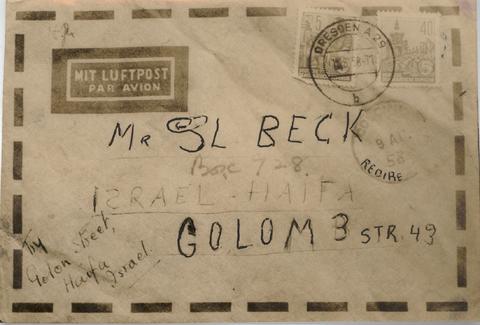 5
40
DRESDEN A 29
58
b
MIT LUFTPOST
PAR AVION
9 AU
58
REDIRE
Mr SL BECK
Box 728
ISRAEL - HAIFA
GOLOMB STR. 49
Try
Golon Street,
Haifa
Israel